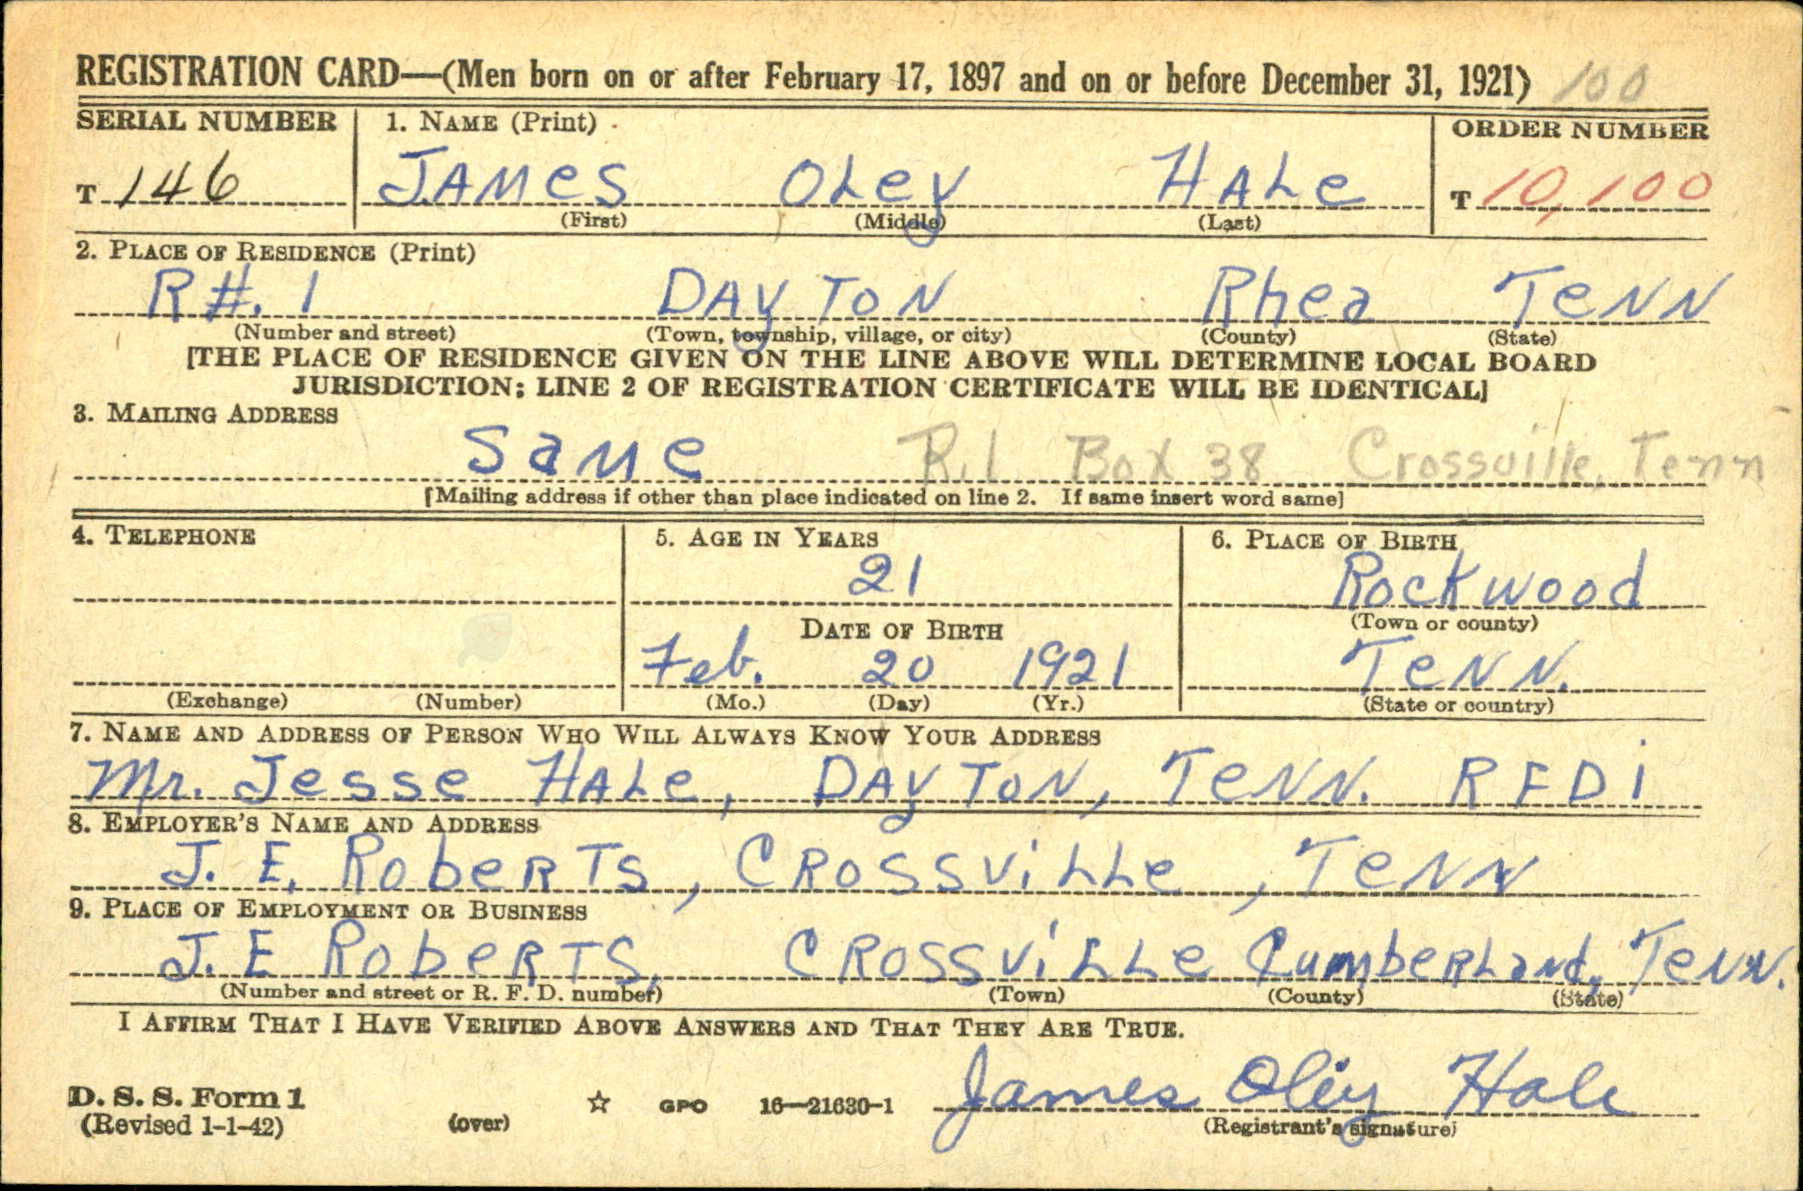 REGISTRATION CARD—(Men born on or after February 17, 1897 and on or before December 31, 1921) 100
SERIAL NUMBER 1. NAME (Print) ORDER NUMBER
T 146 JAMES OLEY HALE T 10,100
(First) (Middle) (Last)
2. PLACE OF RESIDENCE (Print)
R#. 1 DAYTON Rhea TENN
(Number and street) (Town, township, village, or city) (County) (State)
[THE PLACE OF RESIDENCE GIVEN ON THE LINE ABOVE WILL DETERMINE LOCAL BOARD
JURISDICTION; LINE 2 OF REGISTRATION CERTIFICATE WILL BE IDENTICAL]
3. MAILING ADDRESS
Same R.1 Box 38 Crossville, Tenn
[Mailing address if other than place indicated on line 2. If same insert word same]
4. TELEPHONE 5. AGE IN YEARS 6. PLACE OF BIRTH
21 Rockwood
(Town or county)
DATE OF BIRTH
Feb. 20 1921 TENN.
(Exchange) (Number) (Mo.) (Day) (Yr.) (State or country)
7. NAME AND ADDRESS OF PERSON WHO WILL ALWAYS KNOW YOUR ADDRESS
Mr. Jesse HALE, DAYTON, TENN. RFD 1
8. EMPLOYER'S NAME AND ADDRESS
J. E. RobeRTS, CROSSVILLE, TENN
9. PLACE OF EMPLOYMENT OR BUSINESS
J. E RobeRTS, CROSSVILLE CumbeRLand, TENN.
(Number and street or R. F. D. number) (Town) (County) (State)
I AFFIRM THAT I HAVE VERIFIED ABOVE ANSWERS AND THAT THEY ARE TRUE.
James Oley Hale
D. S. S. Form 1
(Revised 1-1-42) (over) ☆ GPO 16—21630-1 (Registrant's signature)